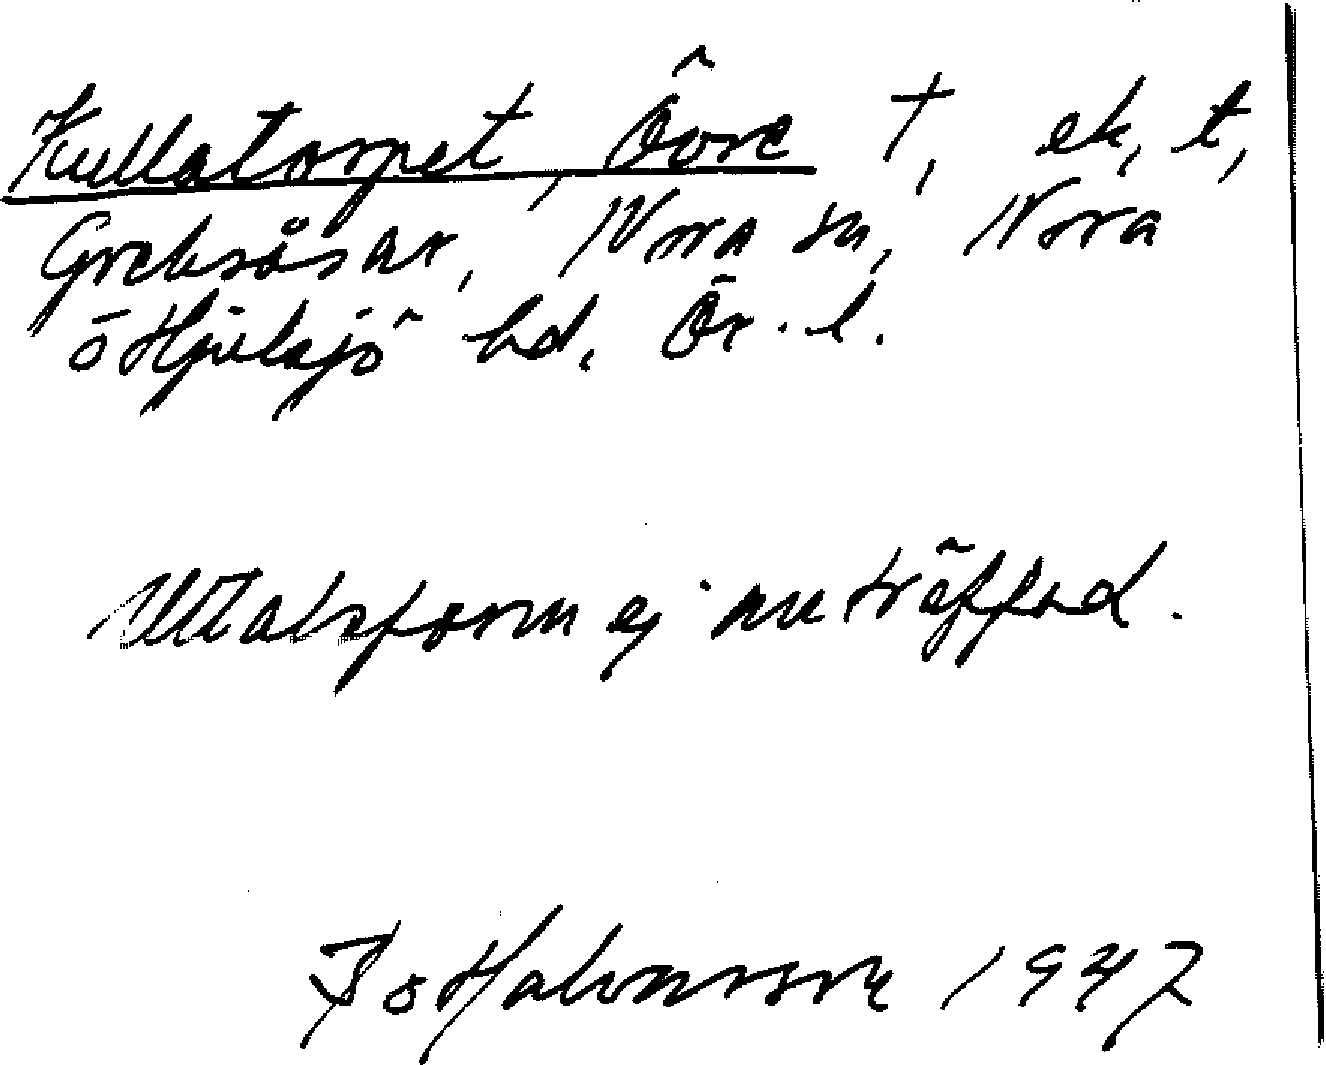 Kullatorpet, Övre †, ek, t,
Greksåsar, Nora sn, Nora
o Hjulsjö hd. Ör. l.
Uttalsform ej anträffad.
Bo Halvarsson 1947